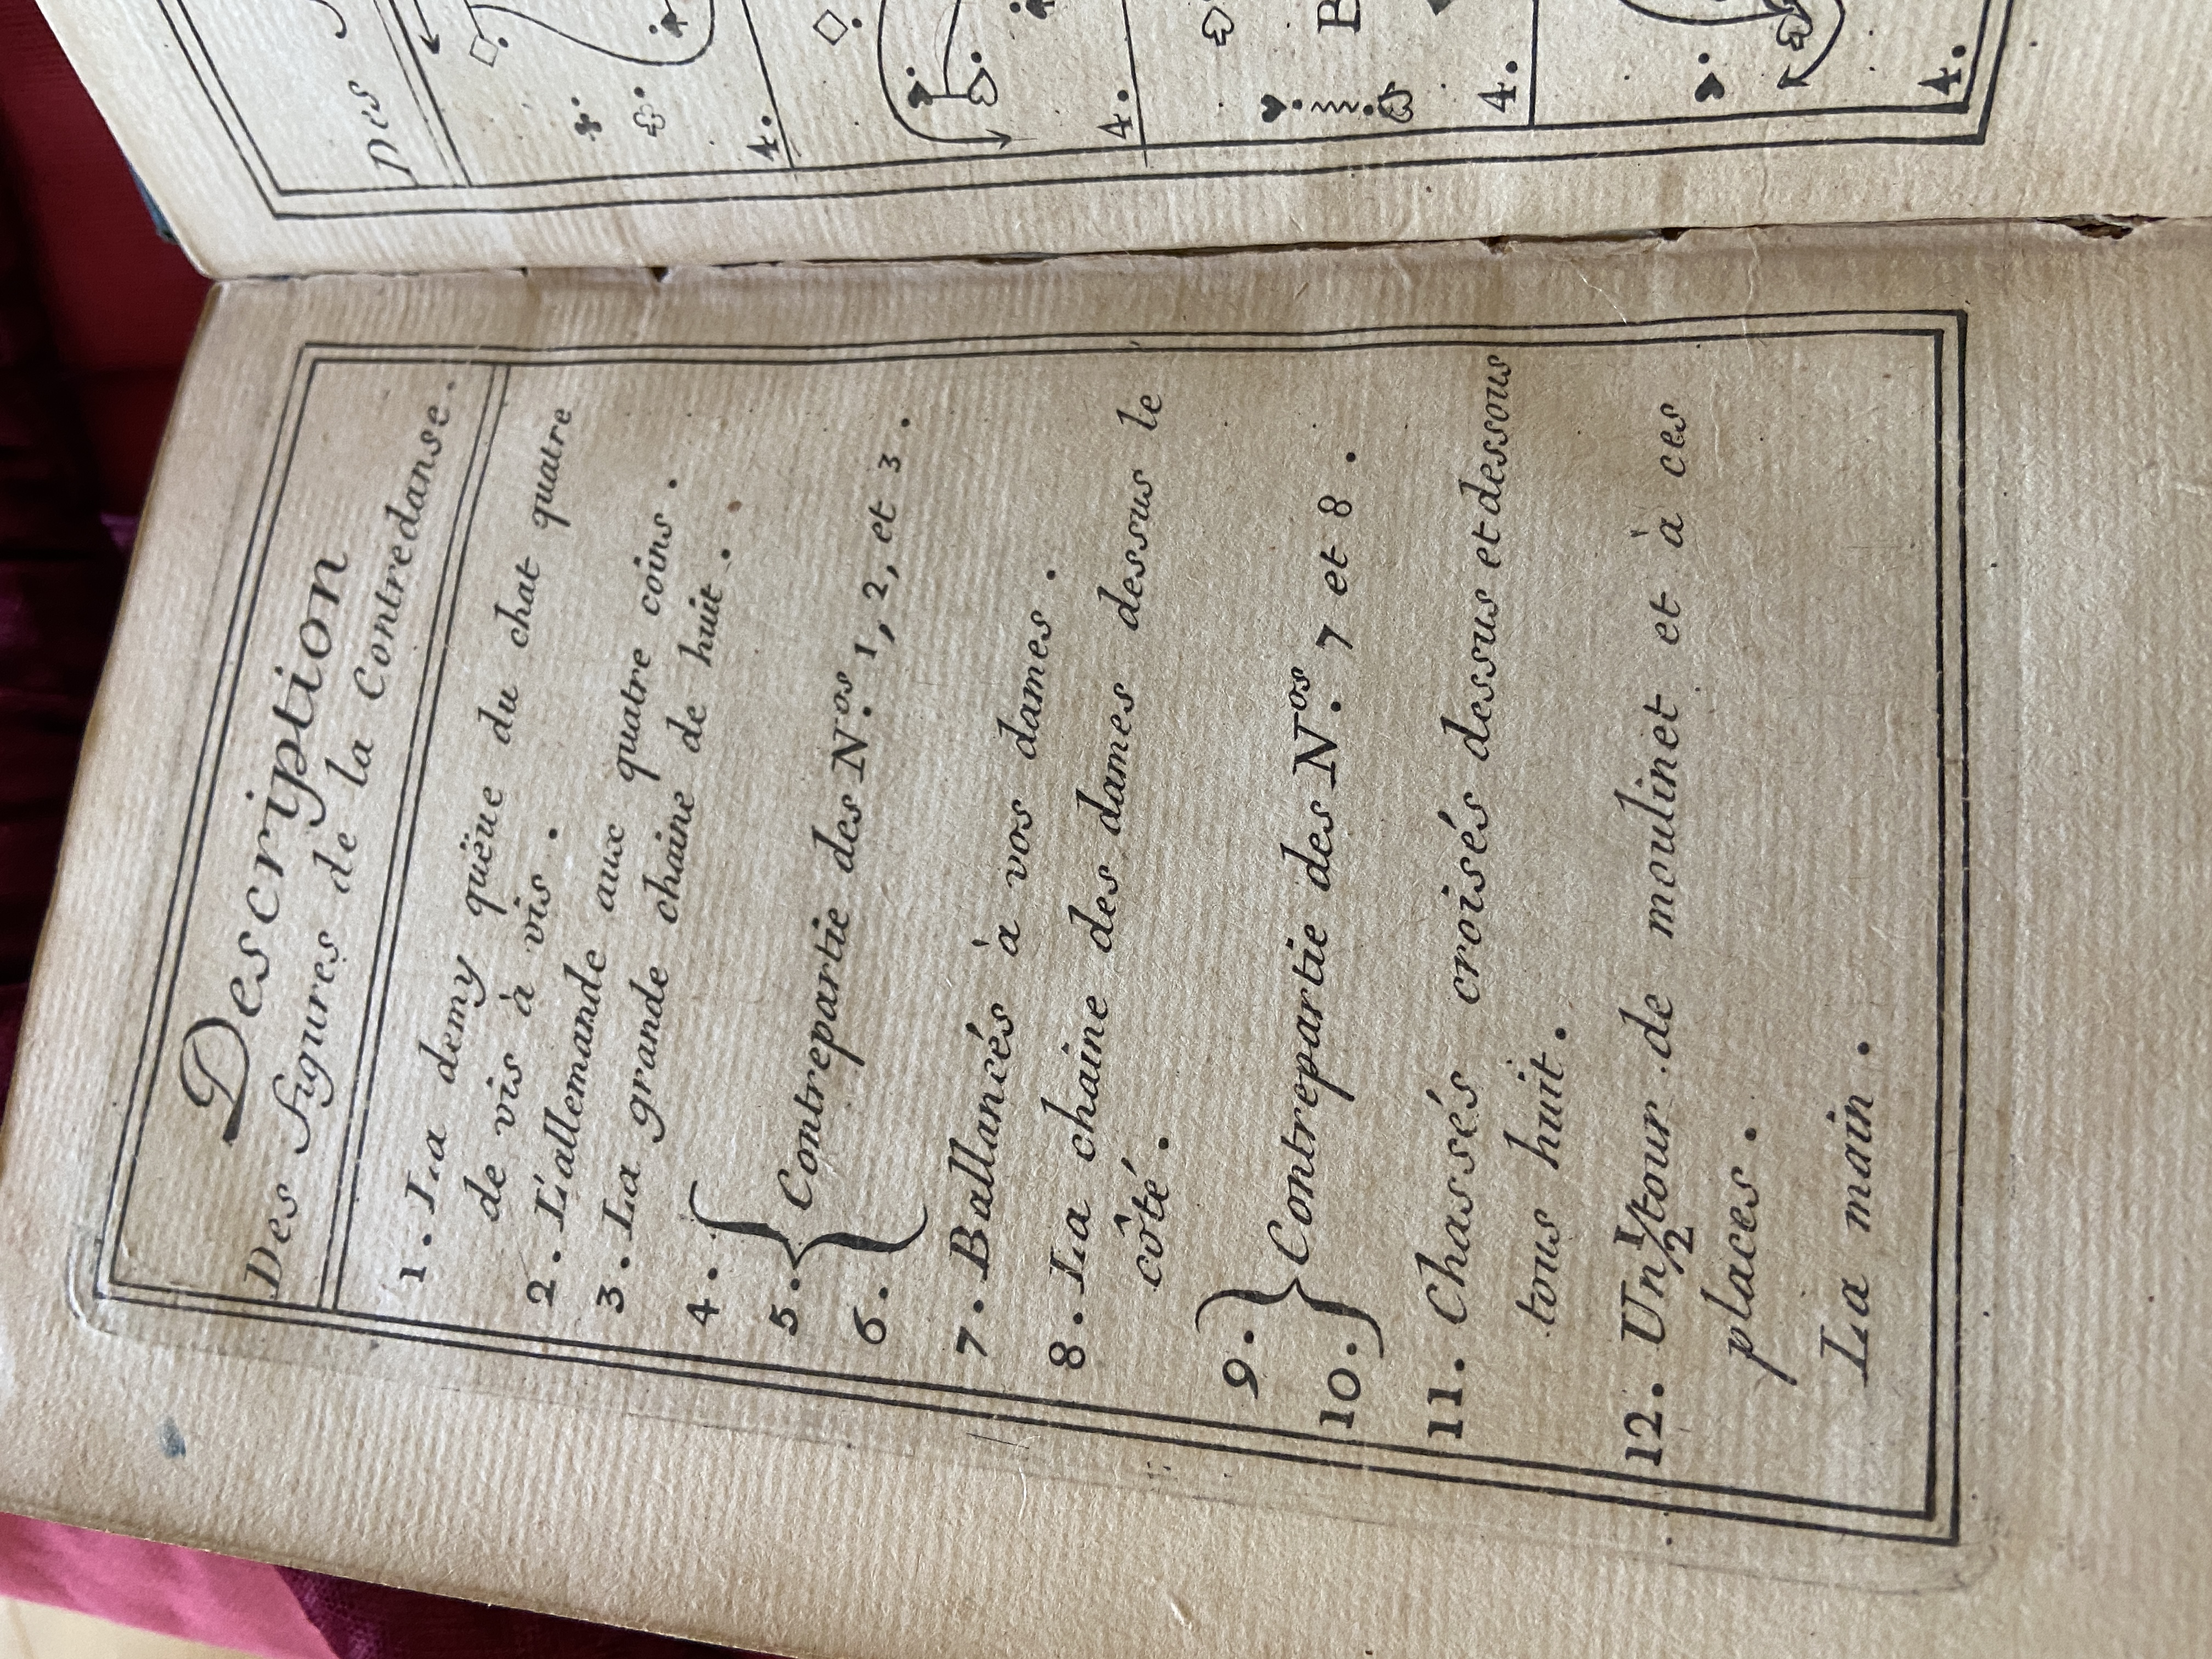 Description
Des figures de la Contredanse.
1. La demy quëue du chat quatre
de vis à vis.
2. L'allemande aux quatre coins.
3. La grande chaine de huit.
4.
5. Contrepartie des N.os 1, 2, et 3.
6.
7. Ballancés à vos dames.
8. La chaine des dames dessus le
côté.
9.
10. Contrepartie des N.os 7 et 8.
11. Chassés croisés dessus et dessous
tous huit.
12. Un 1/2 tour de moulinet et à ces
places.
La main.
pes
4.
4.
B
4.
4.